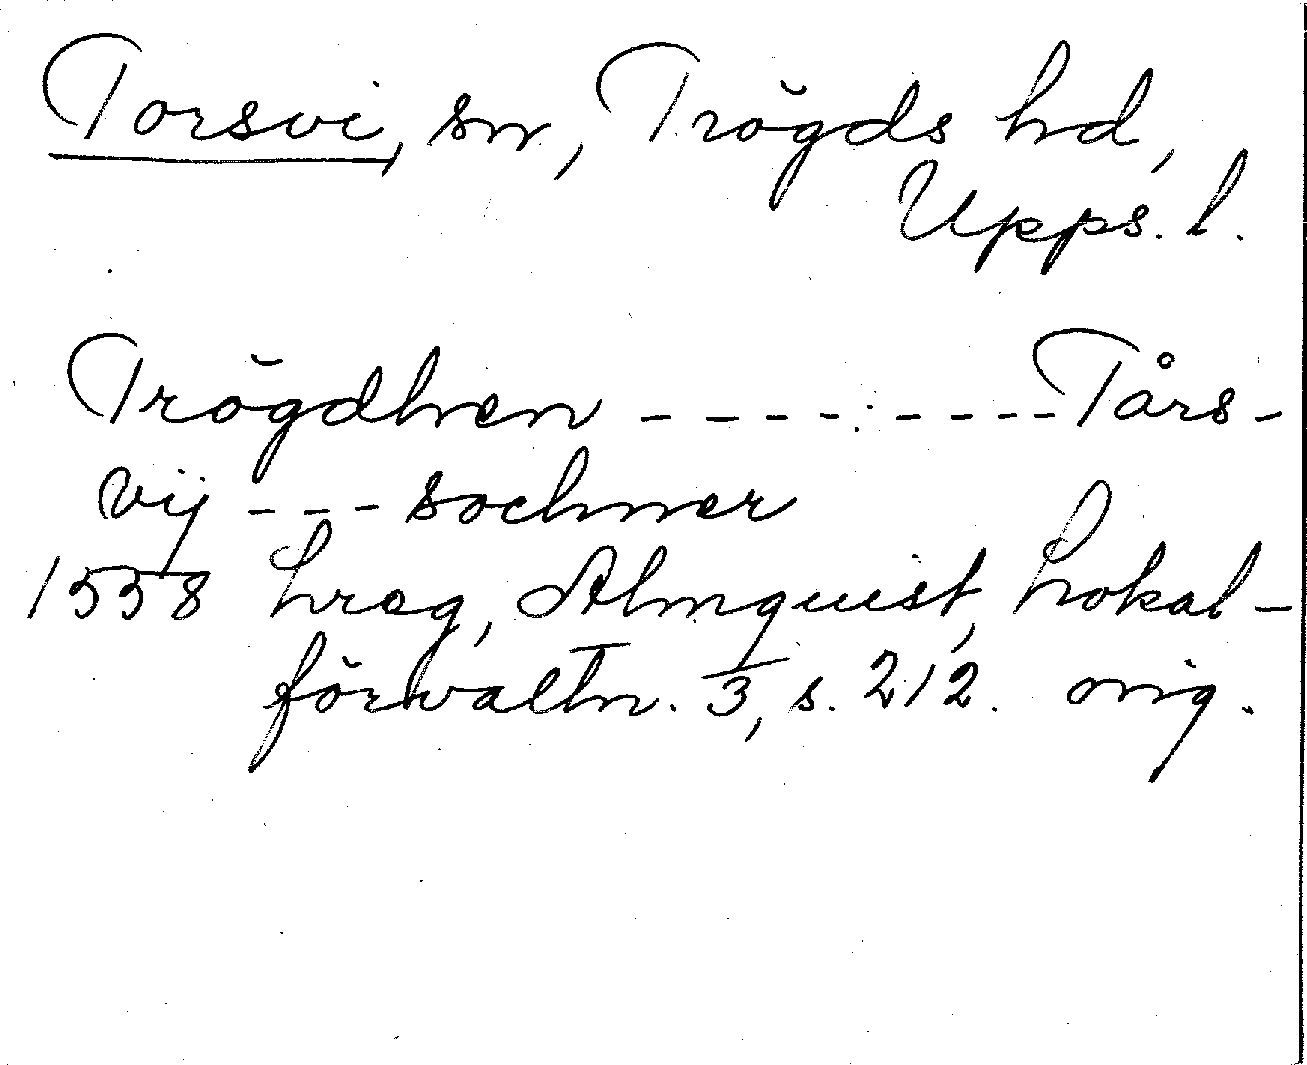 Torsvi, sn, Trögds hd,
Upps. l.
Trögdhen - - - - - - - - Tårs-
vij - - - sochner
1558 hreg, Almquist, Lokal-
förvaltn. 3, s. 212. orig.